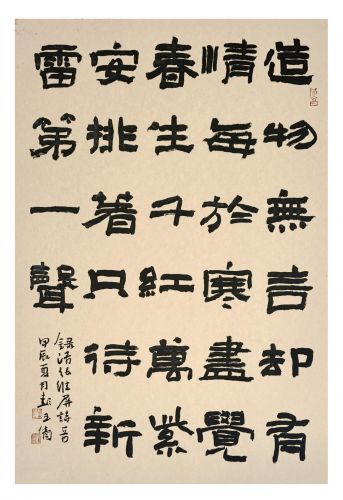 造物無言却有
情每於寒盡覺
春生千紅萬紫
安排著只待新
雷第一聲
錄清張維屏詩
甲辰夏月